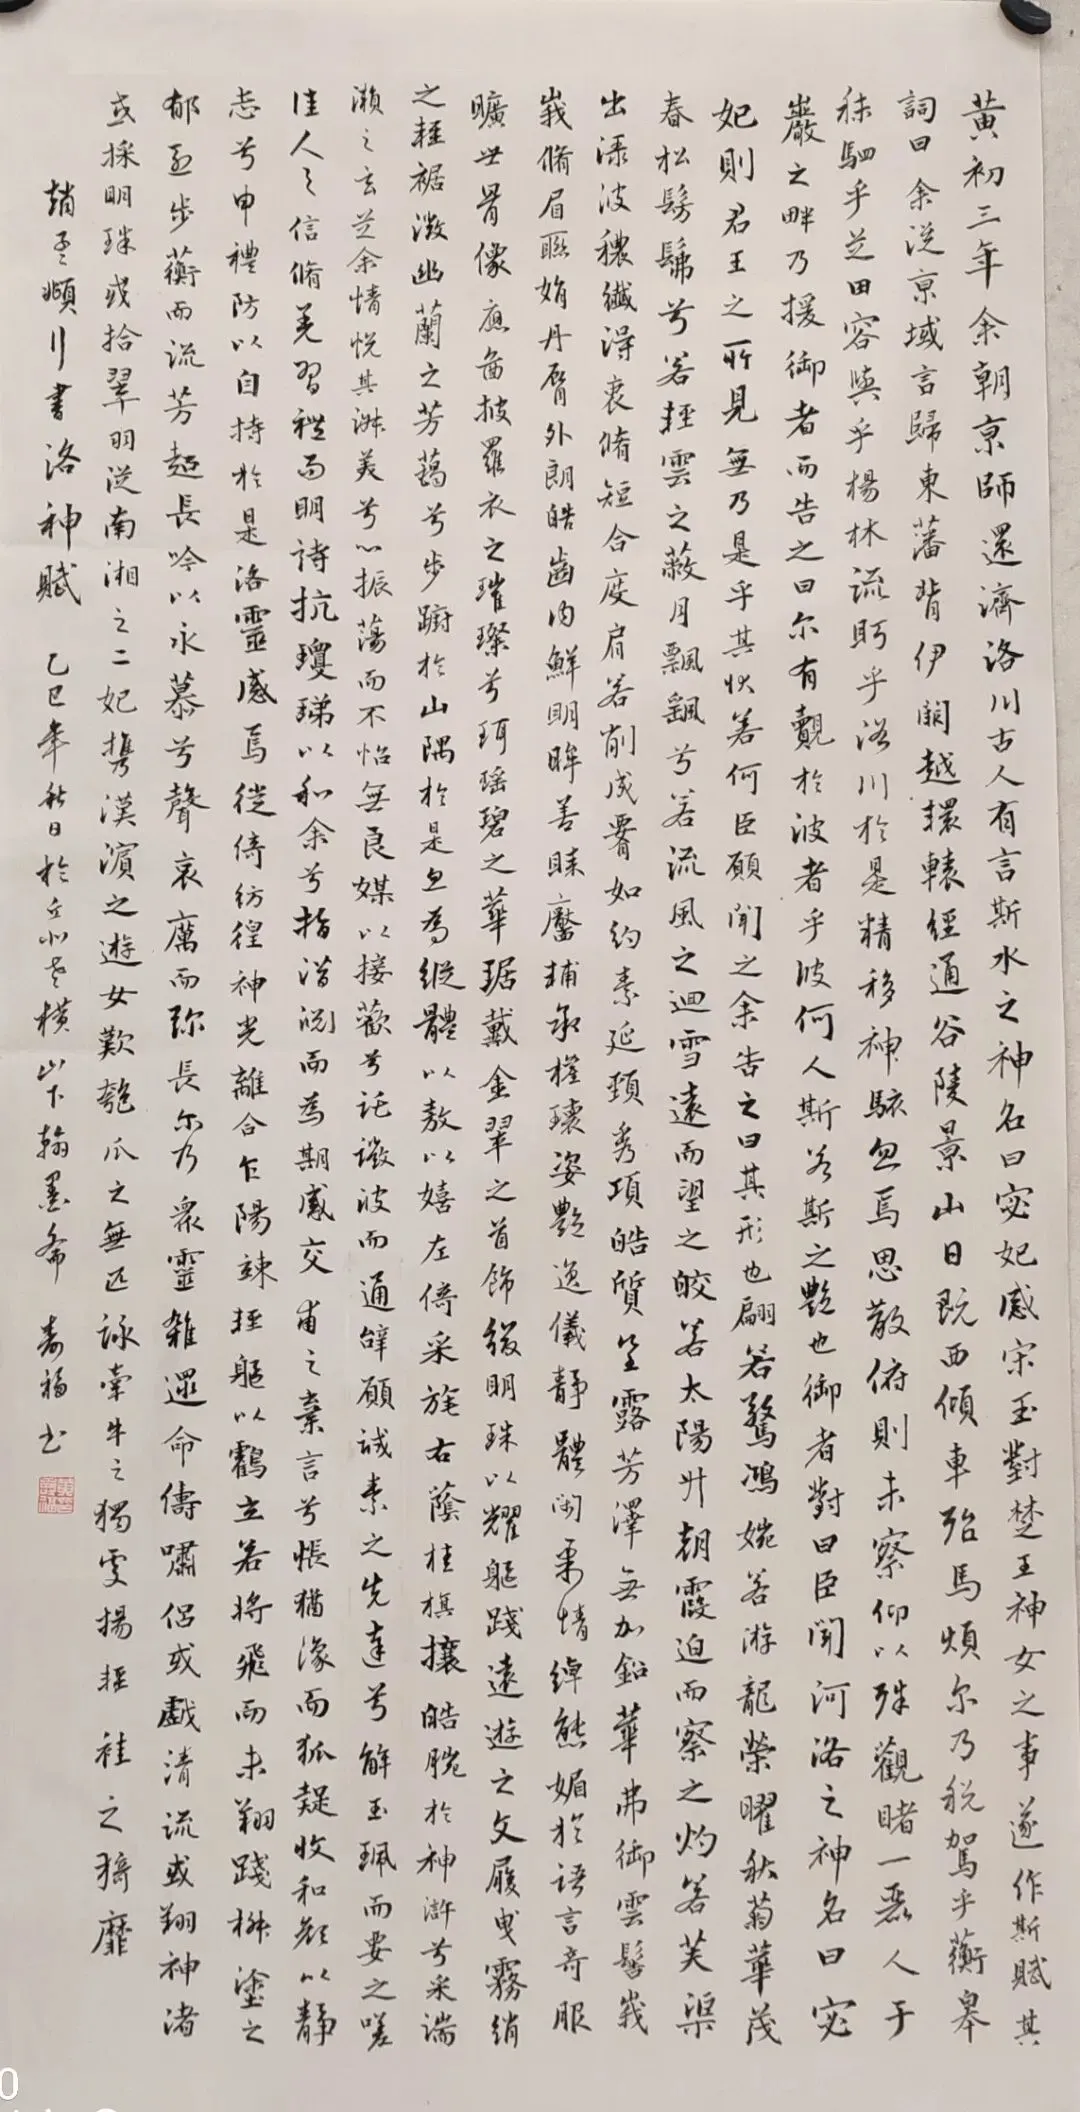 黃初三年余朝京師還濟洛川古人有言斯水之神名曰宓妃感宋玉對楚王神女之事遂作斯賦其
詞曰余從京域言歸東藩背伊闕越轘轅經通谷陵景山日既西傾車殆馬煩爾乃稅駕乎蘅皋
秣駟乎芝田容與乎楊林流眄乎洛川於是精移神駭忽焉思散俯則未察仰以殊觀睹一麗人于
巖之畔乃援御者而告之曰尔有覿於彼者乎彼何人斯若斯之艷也御者對曰臣聞河洛之神名曰宓
妃則君王之所見無乃是乎其狀若何臣願聞之余告之曰其形也翩若驚鴻婉若游龍榮曜秋菊華茂
春松髣髴兮若輕雲之蔽月飄颻兮若流風之迴雪遠而望之皎若太陽升朝霞迫而察之灼若芙渠
出淥波穠纖得衷脩短合度肩若削成腰如約素延頸秀項皓質呈露芳澤無加鉛華弗御雲髻峩
峩脩眉聯娟丹脣外朗皓齒內鮮明眸善睞靨輔承權瓌姿艷逸儀靜體閑柔情綽態媚於語言奇服
曠世骨像應圖披羅衣之璀璨兮珥瑤碧之華琚戴金翠之首飾綴明珠以耀軀踐遠遊之文履曳霧綃
之輕裾微幽蘭之芳藹兮步躕於山隅於是忽焉縱體以敖以嬉左倚采旄右蔭桂旗攘皓腕於神滸兮采湍
瀨之玄芝余情悅其淑美兮心振蕩而不怡無良媒以接歡兮託微波而通辭願誠素之先達兮解玉珮而要之嗟
佳人之信脩羌習禮而明詩抗瓊珶以和余兮指潛淵而為期感交甫之棄言兮悵猶豫而狐疑收和顏以靜
志兮申禮防以自持於是洛靈感焉徙倚彷徨神光離合乍陽竦輕軀以鶴立若將飛而未翔踐椒塗之
郁烈步蘅而流芳超長吟以永慕兮聲哀厲而弥長尔乃眾靈雜遝命儔嘯侶或戲清流或翔神渚
或採明珠或拾翠羽從南湘之二妃攜漢濱之遊女歎匏瓜之無匹詠牽牛之獨處揚輕袿之猗靡
趙孟頫行書洛神賦 乙巳年秋日於 橫山下翰墨齋 壽福書